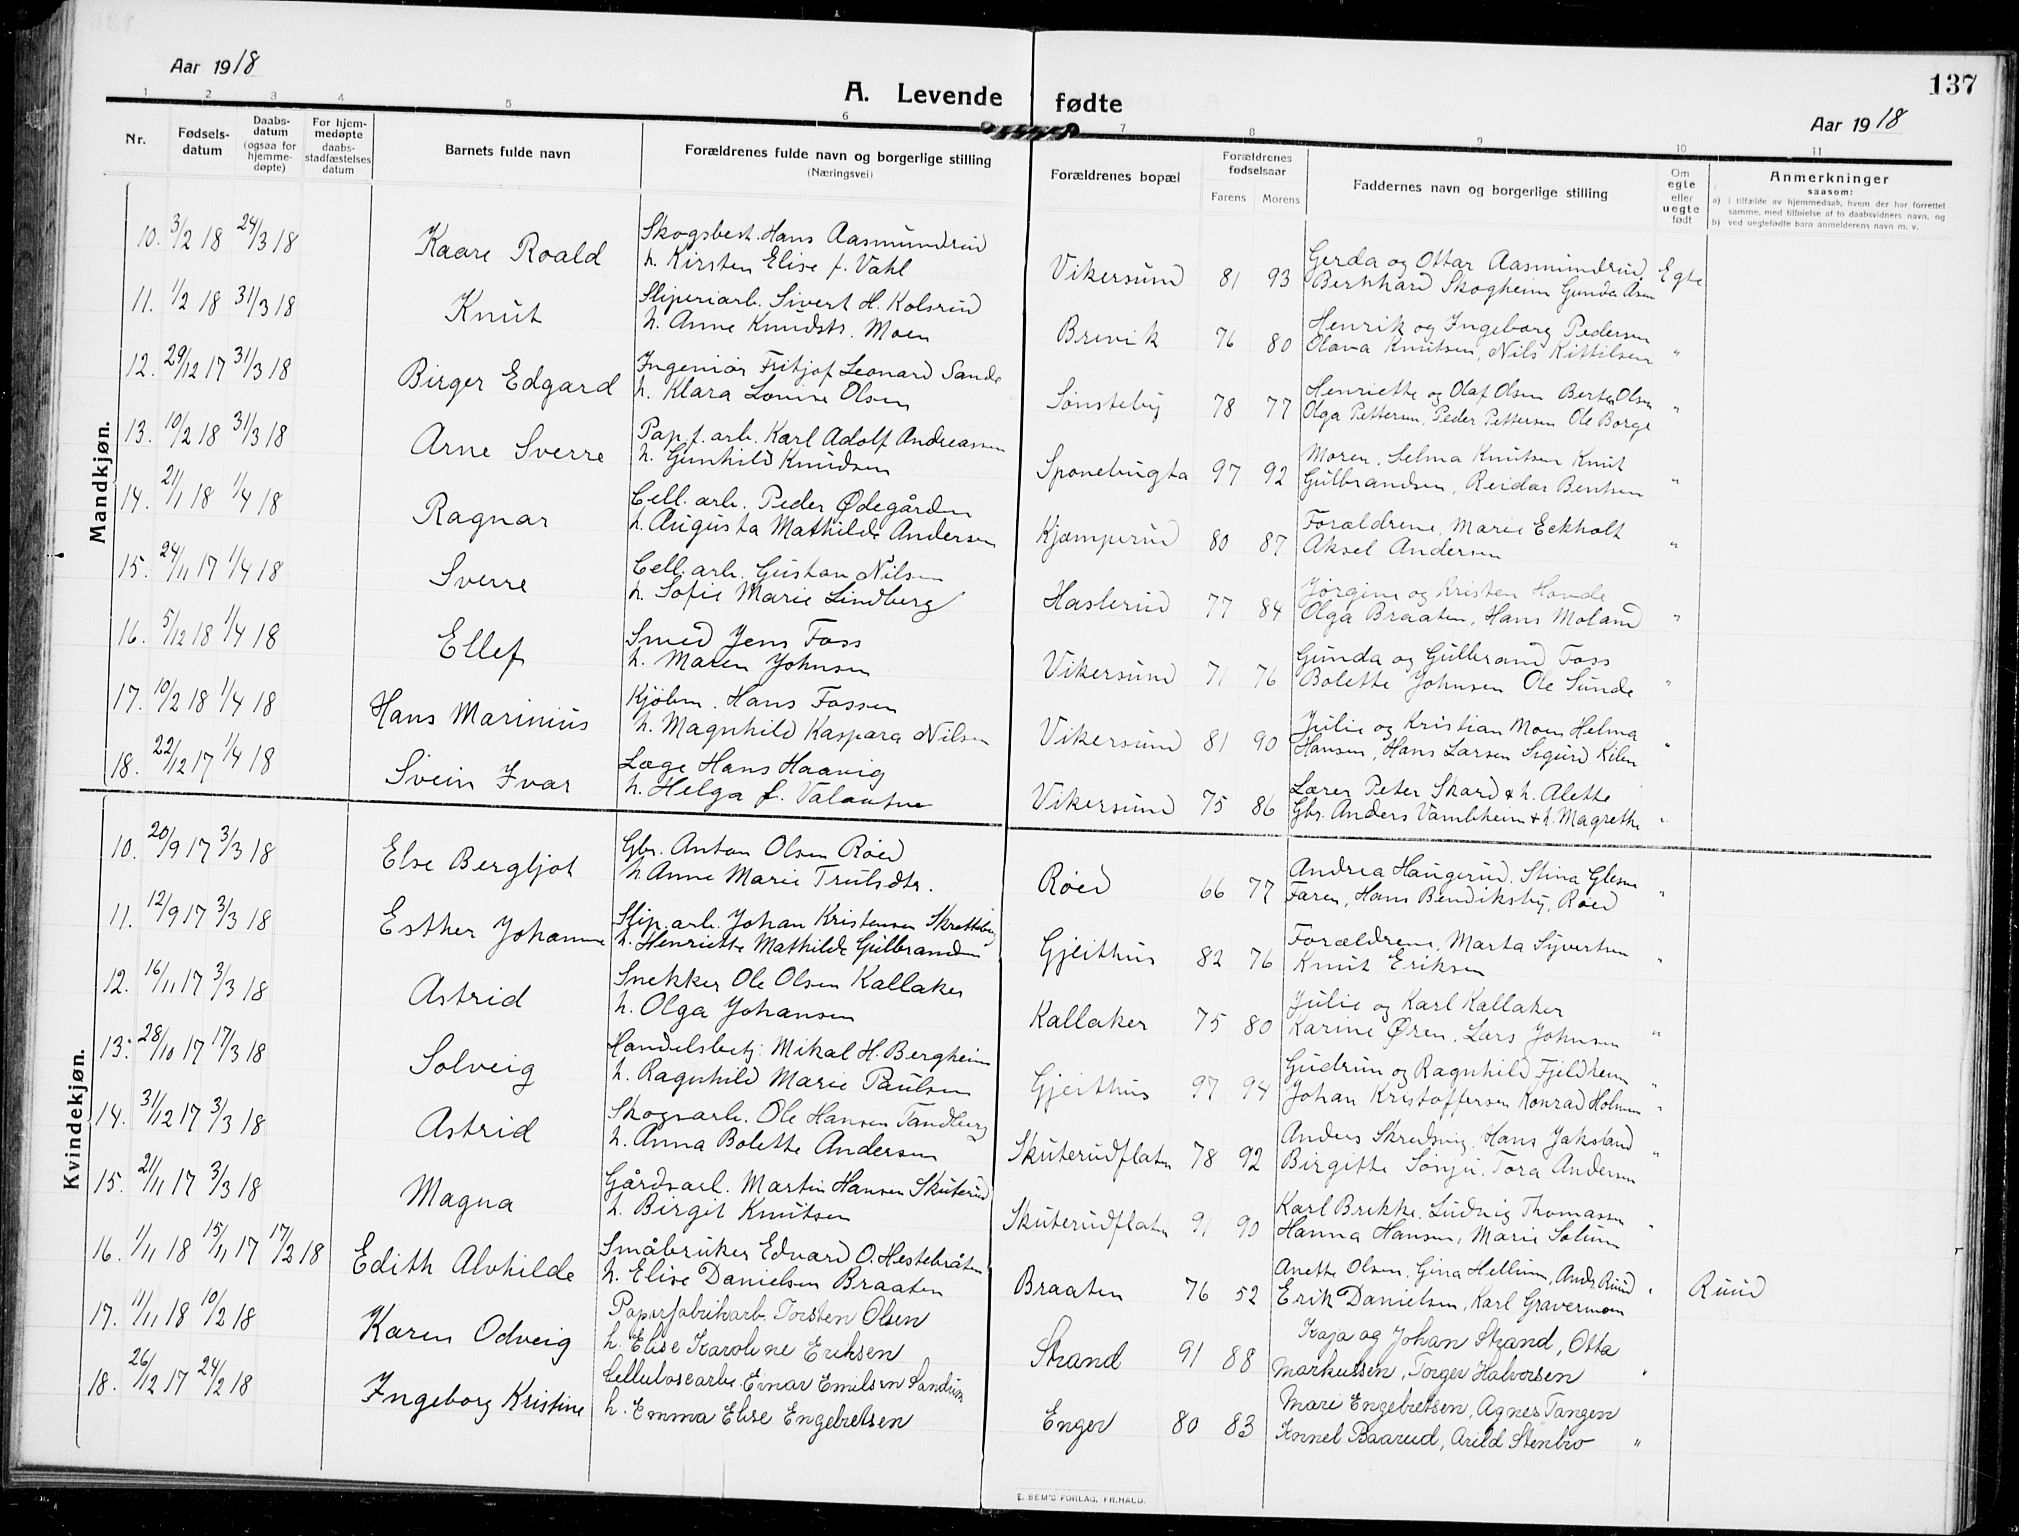 Aar 1918
A. Levende fødte
137
Aar 1918
1 2 3 4 5 6 7 8 9 10 11
Nr.
Fødsels-datum
Daabs-datum (ogsaa for hjemme-døpte)
For hjem-medøpte daabs-stadfæstelses datum
Barnets fulde navn
Forældrenes fulde navn og borgerlige stilling
(Næringsvei)
Forældrenes bopæl
Forældrenes fødselsaar
Farens Morens
Faddernes navn og borgerlige stilling
Om egte eller uegte født
Anmerkninger
saasom:
a) i tilfælde av hjemmedaab, hvem der har forrettet samme, med tilføielse af to daabsvidners navn, og
b) ved uegtefødte barn anmelderens navn m. v.
Mandkjøn.
10. 3/2 18 24/3 18 Kaare Roald Skogsbest. Hans Aasmundrud
h. Kirsten Elise f. Vahl Vikersund 81 93 Gerda og Ottar Aasmundrud, Egte
Bernhard Skogheim Gunda Asen
11. 1/2 18 31/3 18 Knut Sliperiarb. Sivert H. Kolsrud
h. Anne Knudsts. Moen Brevik 76 80 Henrik og Ingeborg Pedersen
Olava Knutsen, Nils Kittilsen "
12. 29/12 17 31/3 18 Birger Edgard Ingeniør Fritjof Leonard Sande
h. Klara Lovise Olsen Sønsteby 78 77 Henriette og Olaf Olsen Berte Olsen
Olga Pettersen, Peder Pettersen Ole Borge "
13. 10/2 18 31/3 18 Arne Sverre Pap. f. arb. Karl Adolf Andreassen
h. Gunhild Knudsen Sponebugta 97 92 Moren, Selma Knutsen Knut
Gulbrandsen, Reidar Bentsen "
14. 21/1 18 1/4 18 Ragnar Cell. arb. Peder Ødegården
h. Augusta Mathilde Andersen Kjæmperud 80 87 Forældrene, Marie Eckholt
Aksel Andersen "
15. 24/11 17 1/4 18 Sverre Cell. arb. Gustav Nilsen
h. Sofie Marie Lindberg Haslerud 77 84 Jørgine og Kristen Hovde
Olga Braaten, Hans Moland "
16. 5/12 18 1/4 18 Ellef Smed Jens Foss
h. Maren Johnsen Vikersund 71 76 Gunda og Gulbrand Foss
Bolette Johnsen Ole Sunde "
17. 10/2 18 1/4 18 Hans Marinius Kjøbm. Hans Fossen
h. Magnhild Kaspara Nilsen Vikersund 81 90 Julie og Kristian Moen Helma
Hansen, Hans Larsen Sigurd Kilen "
18. 22/12 17 1/4 18 Svein Ivar Læge Hans Haavig
h. Helga f. Vikersund 75 86 Lærer Peter Skard & h. Alette
Gbr. Anders Vambheim & h. Magrethe "
Kvindekjøn.
10. 20/9 17 3/3 18 Else Bergljot Gbr. Anton Olsen Røed
h Anne Marie Trulsdtr. Røed 66 77 Andrea Haugerud, Stina Glesne
Faren, Hans Bendiksby, Røed "
11. 12/9 17 3/3 18 Esther Johanne Slip. arb. Johan Kristensen Skretteberg
h. Henriette Mathilde Gulbrandsen Gjeithus 82 76 Forældrene, Marta Syvertsen
Knut Eriksen "
12. 16/11 17 3/3 18 Astrid Snekker Ole Olsen Kallaker
h. Olga Johansen Kallaker 75 80 Julie og Karl Kallaker
Karine Øren, Lars Johnsen "
13. 28/10 17 17/3 18 Solveig Handelsbetj. Mikal H. Bergheim
h. Ragnhild Marie Paulsen Gjeithus 97 94 Gudrun og Ragnhild Fjeldheim "
Johan Kristoffersen Konrad Holmen "
14. 31/12 17 3/3 18 Astrid Skogsarb. Ole Hansen Tandberg
h. Anna Bolette Andersen Skuterudflaten 78 92 Anders Skredsvig, Hans Jaksland
Birgitte Sønju, Tora Andersen "
15. 21/11 17 3/3 18 Magna Gårdsarb. Martin Hansen Skuterud
h. Birgit Knutsen Skuterudflaten 91 90 Karl Brekke, Ludvig Thomassen
Hanna Hansen, Marie Solum "
16. 1/11 18 15/11 17 17/2 18 Edith Alvhilde Småbruker Edvard O. Hestebråten
h. Elise Danielsen Braaten Braaten 76 52 Anette Olsen, Gina Hellum, Andr. Ruud
Erik Danielsen, Karl Gravermoen " Ruud
17. 11/11 18 10/2 18 Karen Odveig Papirfabrikarb. Torsten Olsen
h. Elise Karoline Eriksen Strand 91 88 Kaja og Johan Strand, Otta
Markussen, Torger Halvorsen "
18. 26/12 17 24/2 18 Ingeborg Kristine Cellulosearb. Einar Emilsen Sandum
h. Emma Elise Engebretsen Enger 80 83 Mari Engebretsen, Agnes Tangen
Kornel Baarud, Arild Stenbro "
E. SEM'S FORLAG, FR.HALD.